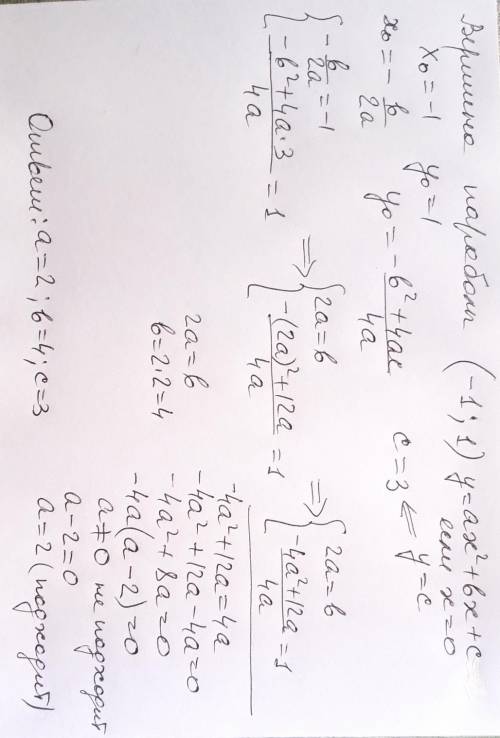 Вершина параболы (-1; 1) y=ax²+bx+c
x₀=-1 y₀=1 если x=0
x₀=-b/2a y₀=(-b²+4ac)/4a c=3 ⇐ y=c
{ -b/2a=-1 ⇒ { 2a=b ⇒ { 2a=b
{ (-b²+4a·3)/4a=1 { (-(2a)²+12a)/4a=1 { (-4a²+12a)/4a=1
-4a²+12a=4a
-4a²+12a-4a=0
-4a²+8a=0
-4a(a-2)=0
a≠0 не подходит
a-2=0
a=2 (подходит)
2a=b
b=2·2=4
Ответ: a=2; b=4; c=3